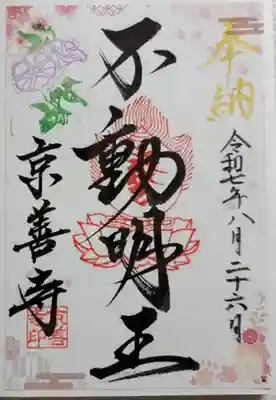 奉納
令和七年八月二十六日
不動明王
京善寺